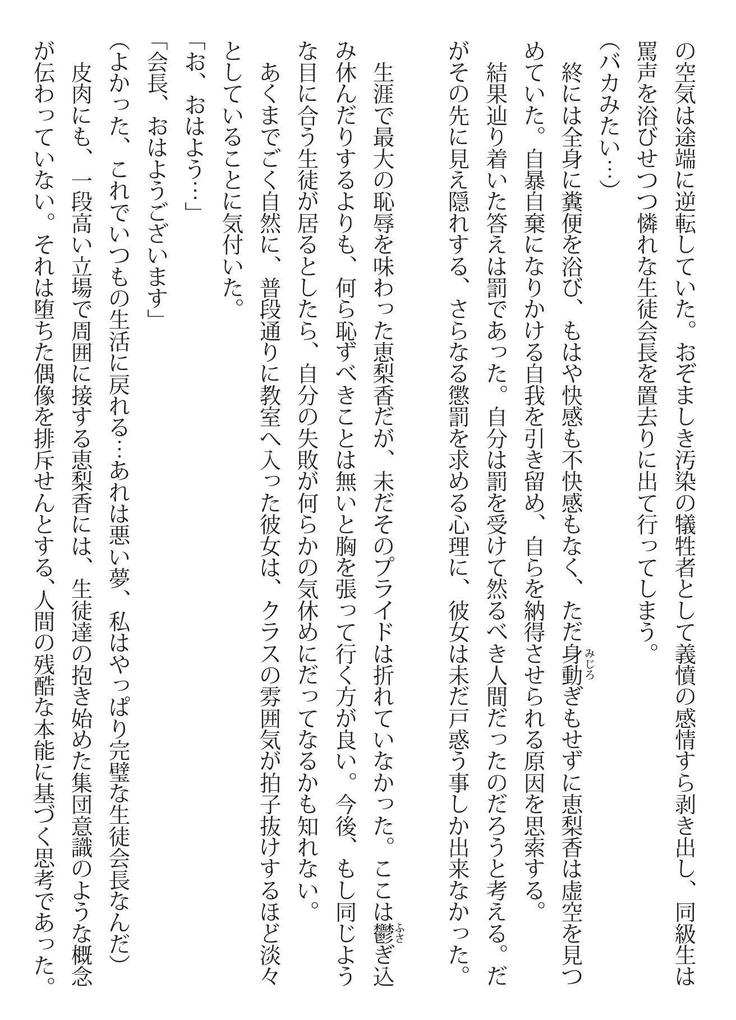 の空気は途端に逆転していた。おぞましき汚染の犠牲者として義憤の感情すら剥き出し、同級生は
罵声を浴びせつつ憐れな生徒会長を置去りに出て行ってしまう。
（バカみたい…）
終には全身に糞便を浴び、もはや快感も不快感もなく、ただ身動みじろぎもせずに恵梨香は虚空を見つ
めていた。自暴自棄になりかける自我を引き留め、自らを納得させられる原因を思索する。
結果辿り着いた答えは罰であった。自分は罰を受けて然るべき人間だったのだろうと考える。だ
がその先に見え隠れする、さらなる懲罰を求める心理に、彼女は未だ戸惑う事しか出来なかった。
生涯で最大の恥辱を味わった恵梨香だが、未だそのプライドは折れていなかった。ここは鬱ふさぎ込
み休んだりするよりも、何ら恥ずべきことは無いと胸を張って行く方が良い。今後、もし同じよう
な目に合う生徒が居るとしたら、自分の失敗が何らかの気休めにだってなるかも知れない。
あくまでごく自然に、普段通りに教室へ入った彼女は、クラスの雰囲気が拍子抜けするほど淡々
としていることに気付いた。
「お、おはよう…」
「会長、おはようございます」
（よかった、これでいつもの生活に戻れる…あれは悪い夢、私はやっぱり完璧な生徒会長なんだ）
皮肉にも、一段高い立場で周囲に接する恵梨香には、生徒達の抱き始めた集団意識のような概念
が伝わっていない。それは堕ちた偶像を排斥せんとする、人間の残酷な本能に基づく思考であった。